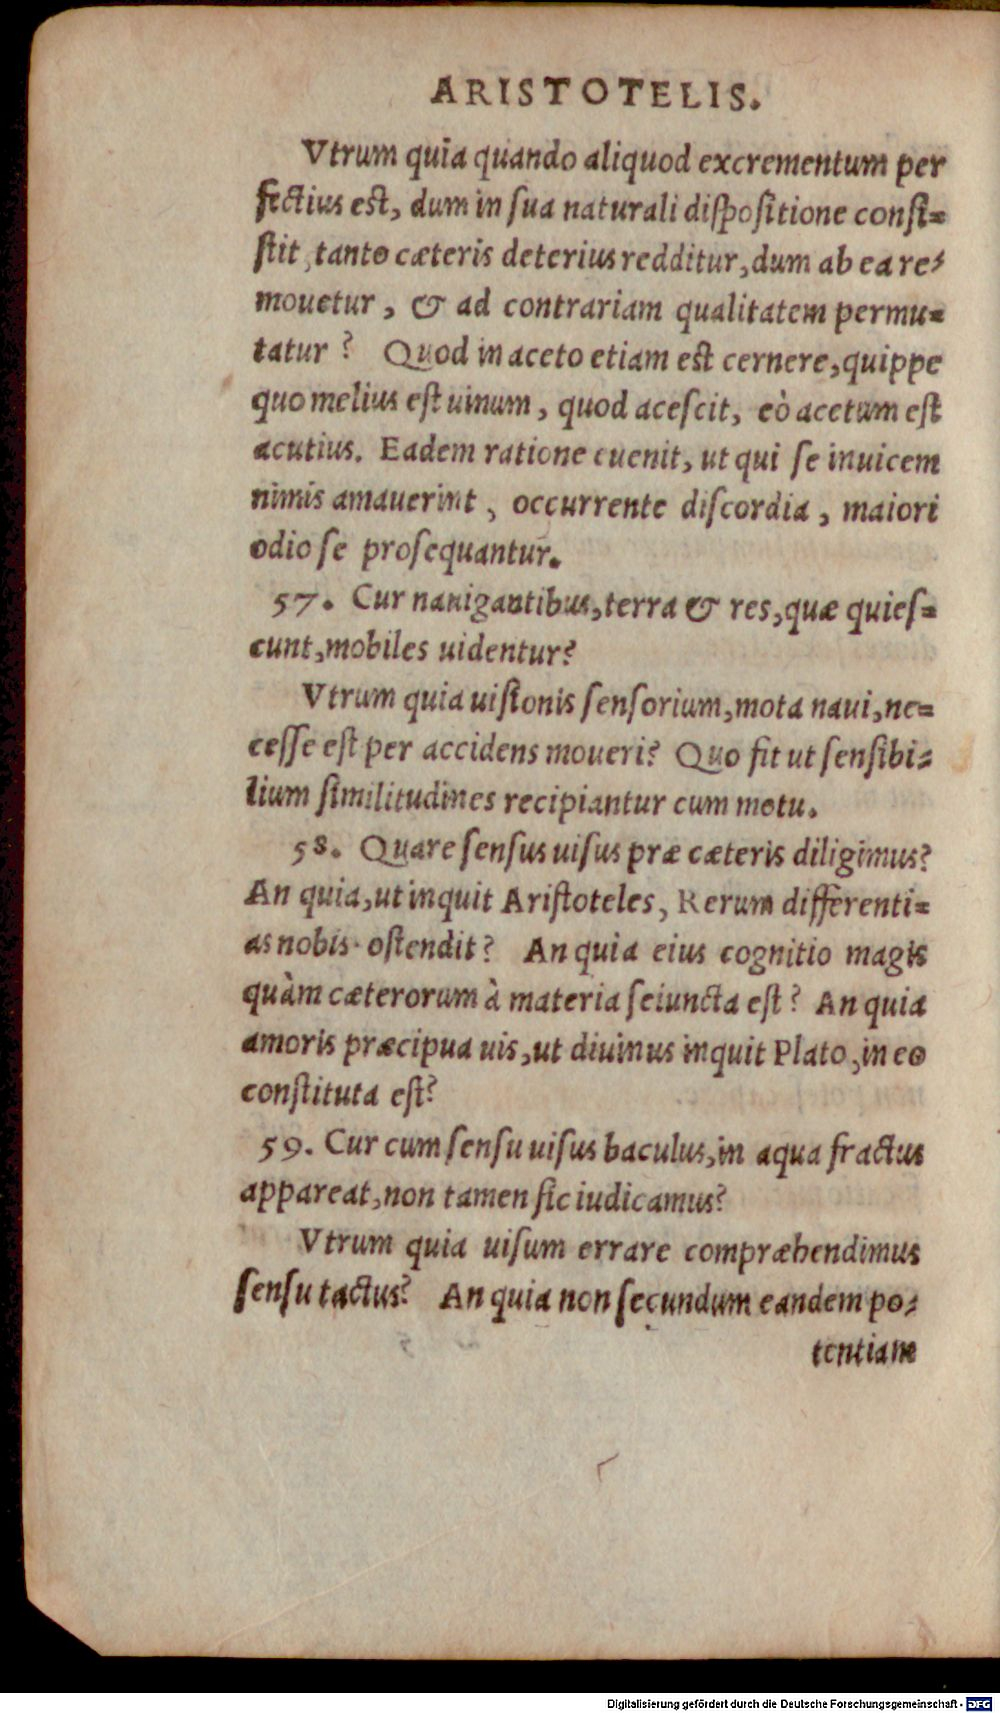 ARISTOTELIS.
Vtrum quia quando aliquod excrementum per
fectius est, dum in sua naturali dispositione consi=
stit, tanto cæteris deterius redditur, dum ab ea re=
mouetur, & ad contrariam qualitatem permu=
tatur? Quod in aceto etiam est cernere, quippe
quo melius est uinum, quod acescit, eò acetum est
acutius. Eadem ratione euenit, ut qui se inuicem
nimis amauerint, occurrente discordia, maiori
odio se prosequantur.
57. Cur nauigantibus, terra & res, quæ quies=
cunt, mobiles uidentur?
Vtrum quia uisionis sensorium, mota naui, ne=
cesse est per accidens moueri? Quo fit ut sensibi=
lium similitudines recipiantur cum motu.
58. Quare sensus uisus præ cæteris diligimus?
An quia, ut inquit Aristoteles, Rerum differenti=
as nobis ostendit? An quia eius cognitio magis
quàm cæterorum à materia seiuncta est? An quia
amoris præcipua uis, ut diuinus inquit Plato, in eo
constituta est?
59. Cur cum sensu uisus baculus, in aqua fractus
appareat, non tamen sic iudicamus?
Vtrum quia uisum errare compræhendimus
sensu tactus? An quia non secundum eandem po=
tentiam
Digitalisierung gefördert durch die Deutsche Forschungsgemeinschaft - DFG